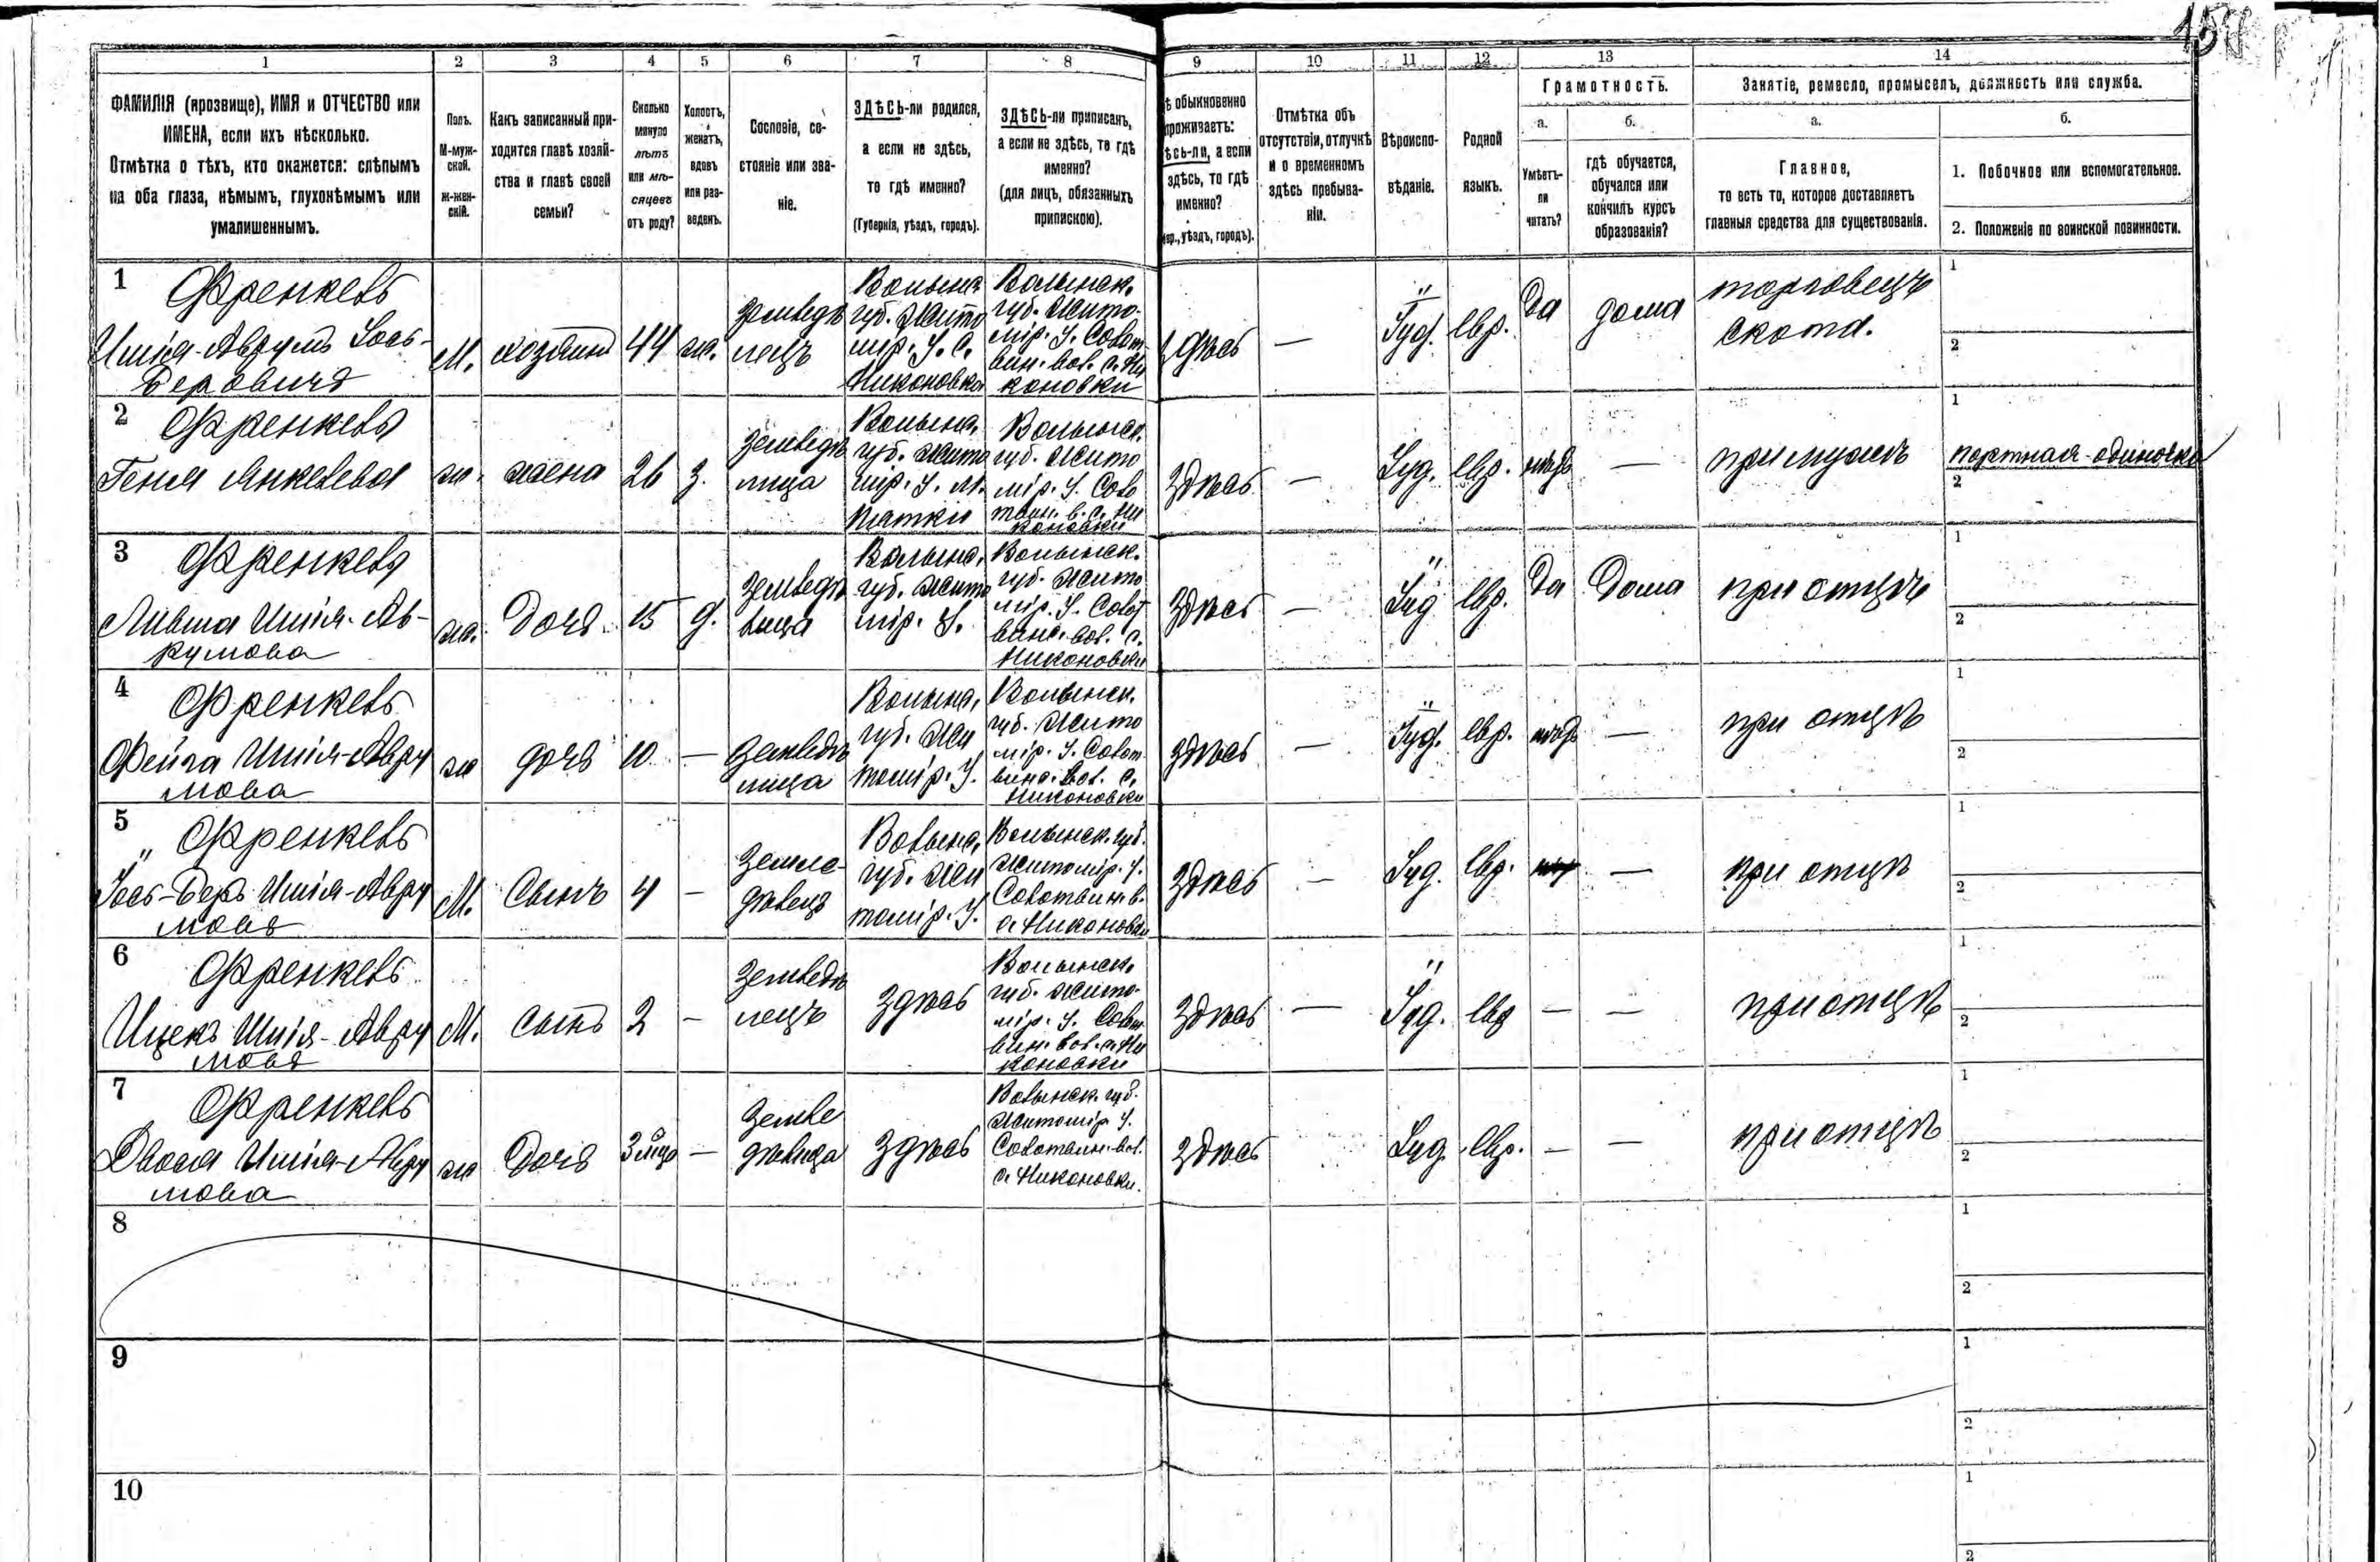 158
1 2 3 4 5 6 7 8 9 10 11 12 13 14
ФАМИЛІЯ (прозвище), ИМЯ и ОТЧЕСТВО или
ИМЕНА, если ихъ нѣсколько.
Отмѣтка о тѣхъ, кто окажется: слѣпымъ
на оба глаза, нѣмымъ, глухонѣмымъ или
умалишеннымъ.
Полъ.
М-муж-
ской.
ж-жен-
скій.
Какъ записанный при-
ходится главѣ хозяй-
ства и главѣ своей
семьи?
Сколько
минуло
лѣтъ
или мѣ-
сяцевъ
отъ роду?
Холостъ,
женатъ,
вдовъ
или раз-
веденъ.
Сословіе, со-
стояніе или зва-
ніе.
ЗДѢСЬ-ли родился,
а если не здѣсь,
то гдѣ именно?
(Губернія, уѣздъ, городъ).
ЗДѢСЬ-ли приписанъ,
а если не здѣсь, то гдѣ
именно?
(для лицъ, обязанныхъ
припискою).
ѣ обыкновенно
проживаетъ:
ѣсь-ли, а если
здѣсь, то гдѣ
именно?
бер., уѣздъ, городъ).
Отмѣтка объ
отсутствіи, отлучкѣ
и о временномъ
здѣсь пребыва-
ніи.
Вѣроиспо-
вѣданіе.
Родной
языкъ.
Грамотность.
а.
Умѣетъ-
ли
читать?
б.
гдѣ обучается,
обучался или
кончилъ курсъ
образованія?
Занятіе, ремесло, промыселъ, должность или служба.
а.
Главное,
то есть то, которое доставляетъ
главныя средства для существованія.
б.
1. Побочное или вспомогательное.
2. Положеніе по воинской повинности.
1
Френкель
Ишія-Аврумъ Іось-
Беровичъ
М.
хозяинъ
44
ж.
Земледѣ
лецъ
Волынс.
губ. Жито
мір. У. с.
Никоновка
Волынск.
губ. Жито-
мір. У. Солот
вин. вол. с. Ни
коновки
здѣсь
—
Іуд.
евр.
да
дома
торговецъ
скота.
1
2
2
Френкель
Геня Янкелева
ж.
жена
26
з.
Земледѣ
лица
Волынс.
губ. Жито
мір. У. м.
Пятки
Волынск.
губ. Жито
мір. У. Соло
твин. в. с. Ни
коновки
здѣсь
—
Іуд.
евр.
нѣтъ
—
при мужѣ
портная-одиночка
1
2
3
Френкель
Ливша Ишія-Ав-
румова
ж.
Дочь
15
д.
Земледѣ
лица
Волынс.
губ. Жито
мір. У.
Волынск.
губ. Жито
мір. У. Солот
вин. вол. с.
Никоновки
здѣсь
—
Іуд
евр.
да
дома
при отцѣ
1
2
4
Френкель
Фейга Ишія-Авру
мова
ж
дочь
10
—
Земледѣ
лица
Волынс.
губ. Жи
томір. У.
Волынск.
губ. Жито
мір. У. Солот
вин. вол. с.
Никоновки
здѣсь
—
Іуд.
евр.
нѣтъ
—
при отцѣ
1
2
5
Френкель
Іось-Беръ Ишія-Авру
мовъ
М.
Сынъ
4
—
Земле-
дѣлецъ
Волынс.
губ. Жи
томір. У.
Волынск. губ.
Житомір. У.
Солотвин. в.
с. Никоновки
здѣсь
—
Іуд.
евр.
—
при отцѣ
1
2
6
Френкель
Ицекъ Ишія-Авру
мовъ
М.
сынъ
2
—
Земледѣ
лецъ
здѣсь
Волынск.
губ. Жито-
мір. У. Солот
вин. вол. с. Ни
коновки
здѣсь
—
Іуд.
евр
—
—
при отцѣ
1
2
7
Френкель
Двося Ишія-Авру
мова
ж
Дочь
3 мѣс
—
Земле
дѣлица
здѣсь
Волынск. губ.
Житомір У.
Солотвин. вол.
с. Никоновки.
здѣсь
Іуд.
евр.
—
—
при отцѣ
1
2
8
1
2
9
1
2
10
1
2